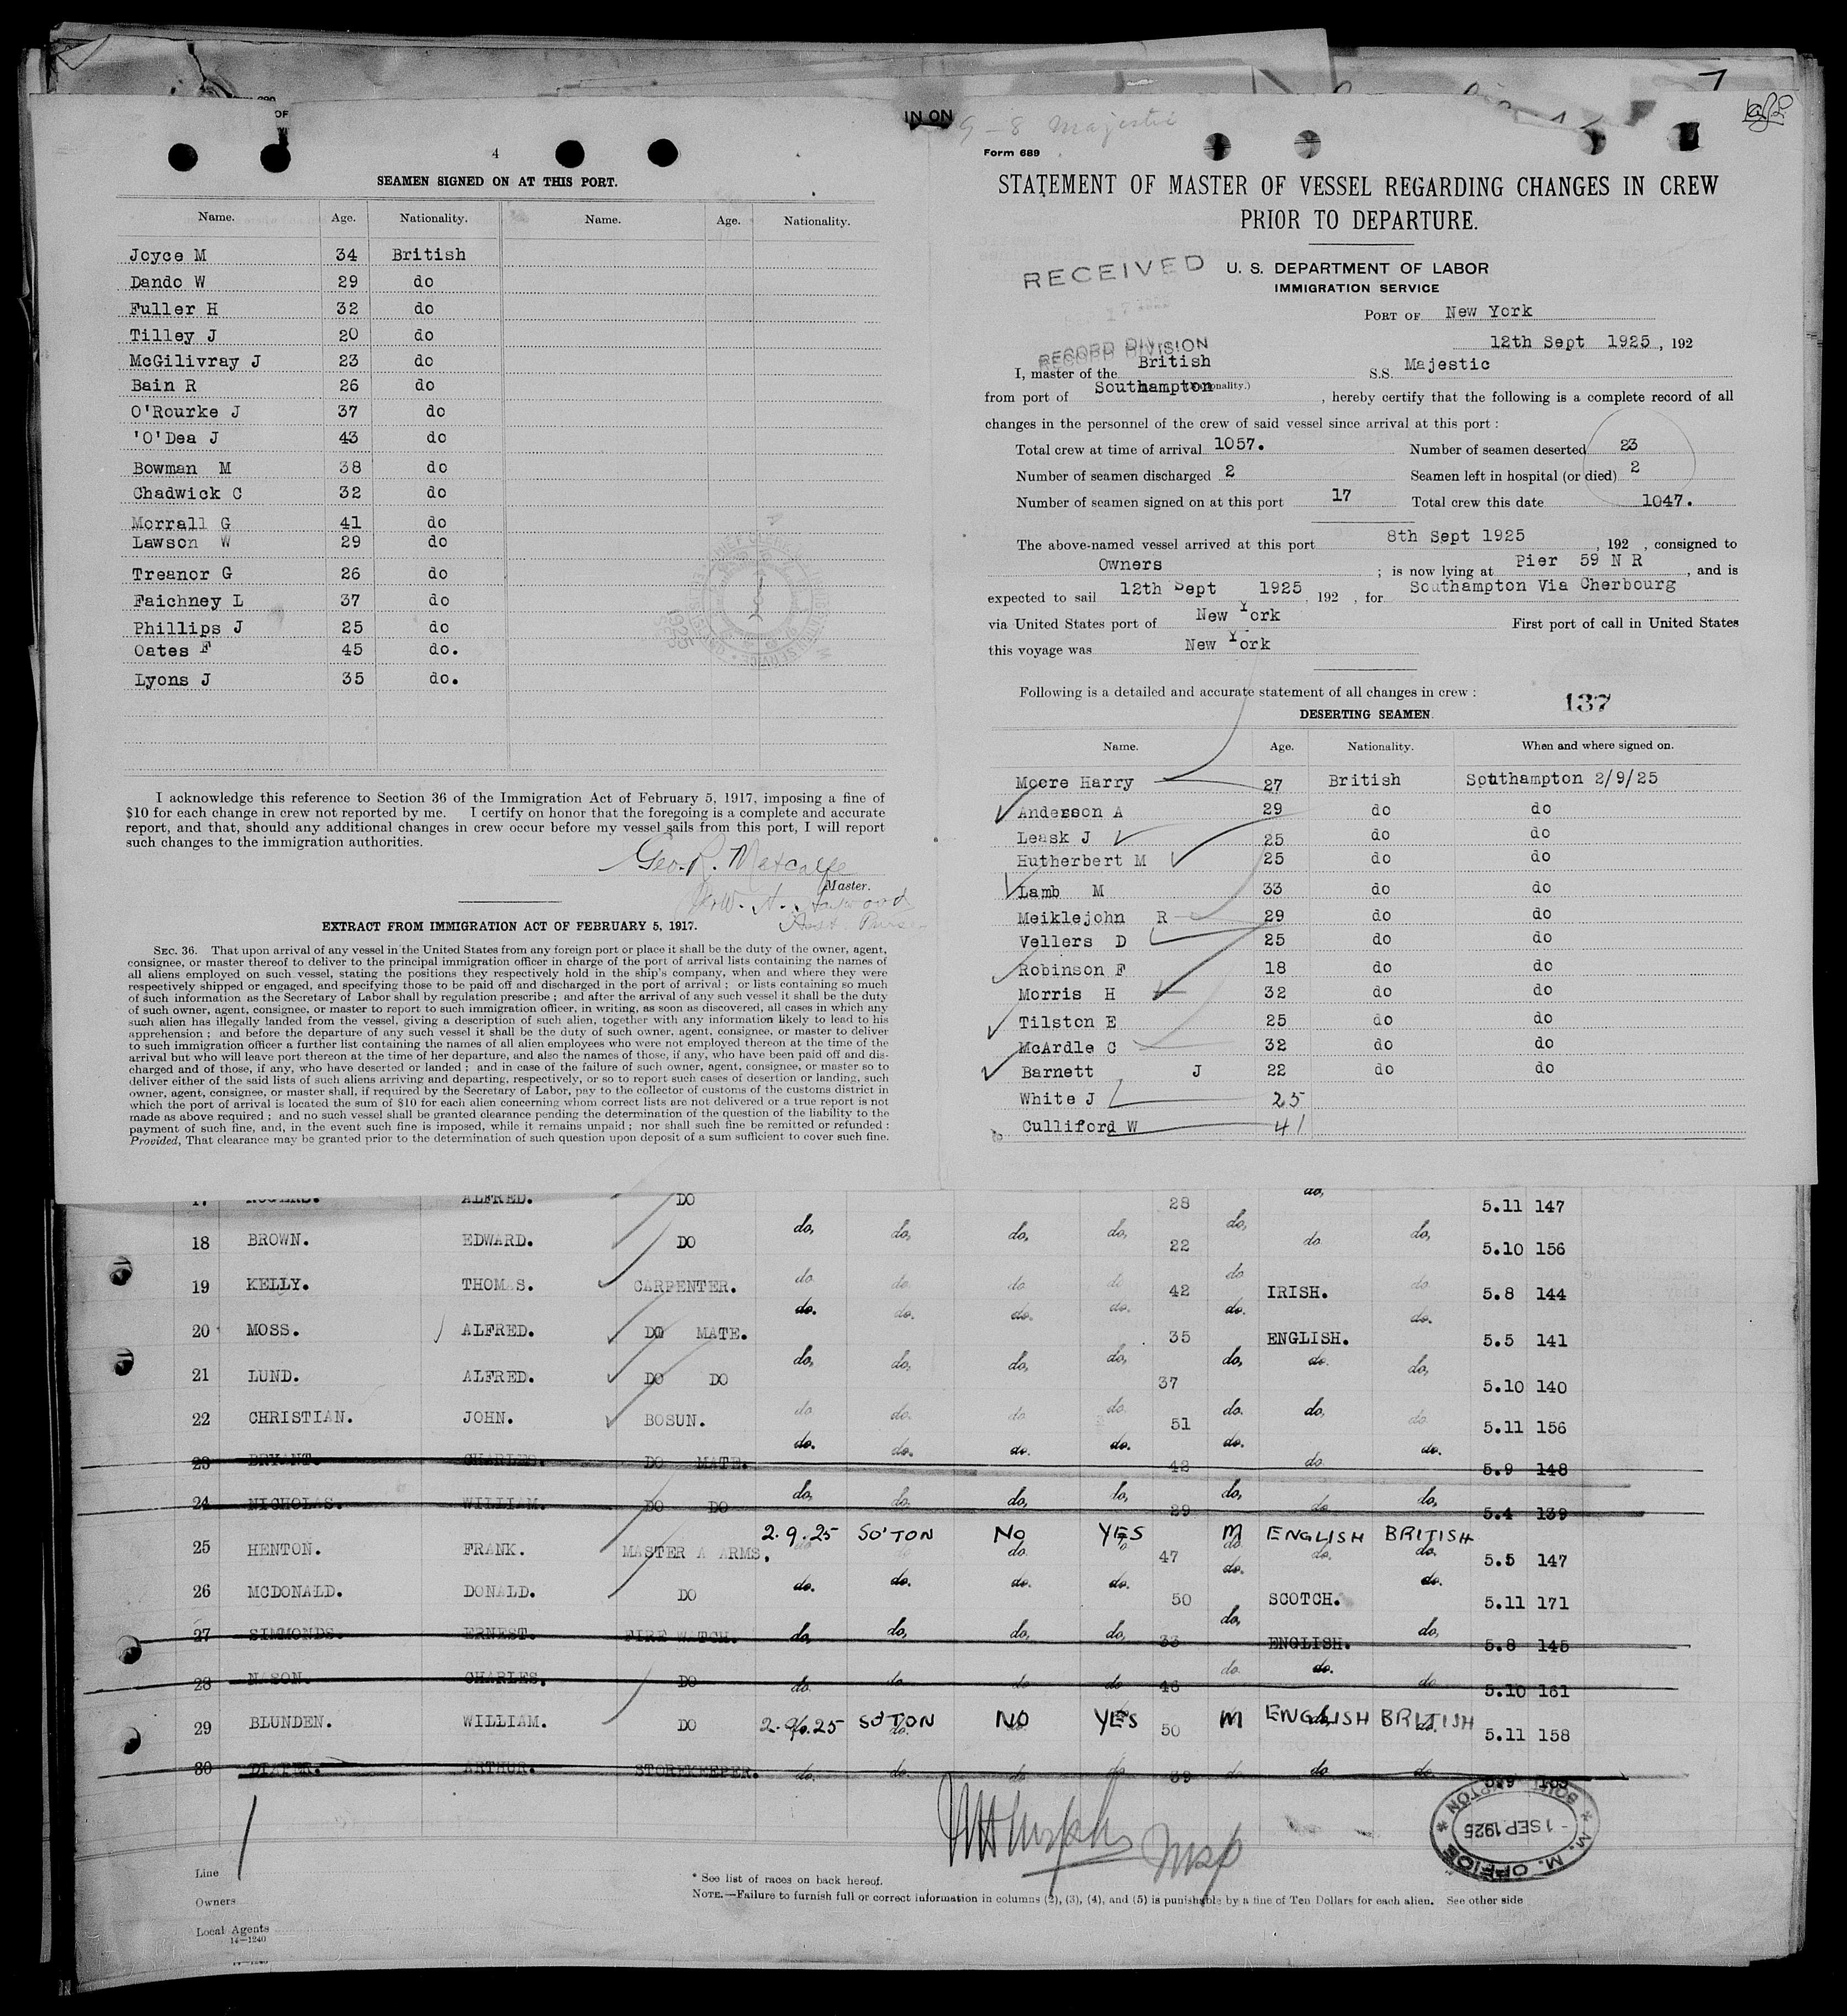 4
SEAMEN SIGNED ON AT THIS PORT.
Name. Age. Nationality. Name. Age. Nationality.
Joyce M 34 British
Dando W 29 do
Fuller H 32 do
Tilley J 20 do
McGilivray J 23 do
Bain R 26 do
O'Rourke J 37 do
'O'Dea J 43 do
Bowman M 38 do
Chadwick C 32 do
Morrall G 41 do
Lawson W 29 do
Treanor G 26 do
Faichney L 37 do
Phillips J 25 do
Oates F 45 do.
Lyons J 35 do.
I acknowledge this reference to Section 36 of the Immigration Act of February 5, 1917, imposing a fine of
$10 for each change in crew not reported by me. I certify on honor that the foregoing is a complete and accurate
report, and that, should any additional changes in crew occur before my vessel sails from this port, I will report
such changes to the immigration authorities.
Geo. R. Metcalfe
Master.
EXTRACT FROM IMMIGRATION ACT OF FEBRUARY 5, 1917.
SEC. 36. That upon arrival of any vessel in the United States from any foreign port or place it shall be the duty of the owner, agent,
consignee, or master thereof to deliver to the principal immigration officer in charge of the port of arrival lists containing the names of
all aliens employed on such vessel, stating the positions they respectively hold in the ship's company, when and where they were
respectively shipped or engaged, and specifying those to be paid off and discharged in the port of arrival; or lists containing so much
of such information as the Secretary of Labor shall by regulation prescribe; and after the arrival of any such vessel it shall be the duty
of such owner, agent, consignee, or master to report to such immigration officer, in writing, as soon as discovered, all cases in which any
such alien has illegally landed from the vessel, giving a description of such alien, together with any information likely to lead to his
apprehension; and before the departure of any such vessel it shall be the duty of such owner, agent, consignee, or master to deliver
to such immigration officer a further list containing the names of all alien employees who were not employed thereon at the time of the
arrival but who will leave port thereon at the time of her departure, and also the names of those, if any, who have been paid off and dis-
charged and of those, if any, who have deserted or landed; and in case of the failure of such owner, agent, consignee, or master so to
deliver either of the said lists of such aliens arriving and departing, respectively, or so to report such cases of desertion or landing, such
owner, agent, consignee, or master shall, if required by the Secretary of Labor, pay to the collector of customs of the customs district in
which the port of arrival is located the sum of $10 for each alien concerning whom correct lists are not delivered or a true report is not
made as above required; and no such vessel shall be granted clearance pending the determination of the question of the liability to the
payment of such fine, and, in the event such fine is imposed, while it remains unpaid; nor shall such fine be remitted or refunded:
Provided, That clearance may be granted prior to the determination of such question upon deposit of a sum sufficient to cover such fine.
IN ON
9-8 Majestic
Form 689
STATEMENT OF MASTER OF VESSEL REGARDING CHANGES IN CREW
PRIOR TO DEPARTURE.
RECEIVED
U. S. DEPARTMENT OF LABOR
IMMIGRATION SERVICE
PORT OF New York
12th Sept 1925, 192
RECORD DIVISION
I, master of the British S.S. Majestic
from port of Southampton, hereby certify that the following is a complete record of all
changes in the personnel of the crew of said vessel since arrival at this port:
Total crew at time of arrival 1057. Number of seamen deserted 23
Number of seamen discharged 2 Seamen left in hospital (or died) 2
Number of seamen signed on at this port 17 Total crew this date 1047.
The above-named vessel arrived at this port 8th Sept 1925, 192 , consigned to
Owners; is now lying at Pier 59 N R, and is
expected to sail 12th Sept 1925, 192 , for Southampton Via Cherbourg
via United States port of New York First port of call in United States
this voyage was New York
Following is a detailed and accurate statement of all changes in crew:
137
DESERTING SEAMEN.
Name. Age. Nationality. When and where signed on.
Moore Harry 27 British Southampton 2/9/25
Anderson A 29 do do
Leask J 25 do do
Hutherbert M 25 do do
Lamb M 33 do do
Meiklejohn R 29 do do
Vellers D 25 do do
Robinson F 18 do do
Morris H 32 do do
Tilston E 25 do do
McArdle C 32 do do
Barnett J 22 do do
White J 25
Culliford W 41
17 ROGERS. ALFRED. DO 28 do, 5.11 147
18 BROWN. EDWARD. DO do, do, do, do, 22 do, do do, 5.10 156
19 KELLY. THOMAS. CARPENTER. do do do do 42 do IRISH. do 5.8 144
20 MOSS. ALFRED. DO MATE. do. do. do. do. 35 do. ENGLISH. do. 5.5 141
21 LUND. ALFRED. DO DO do, do, do, do, 37 do, do. do, 5.10 140
22 CHRISTIAN. JOHN. BOSUN. do do. do do. 51 do. do, do 5.11 156
23 BRYANT. CHARLES. DO MATE. do. do. do. do. 42 do. do do. 5.9 148
24 NICHOLAS. WILLIAM. DO DO do, do, do, do, 29 do, do do, 5.4 139
2.9.25 SO'TON NO YES M ENGLISH BRITISH
25 HENTON. FRANK. MASTER A ARMS. do do do. 47 do do. do. 5.5 147
26 MCDONALD. DONALD. DO do. do. do. do. 50 do. SCOTCH. do. 5.11 171
27 SIMMONDS. ERNEST. FIRE WATCH. do, do, do, do, 33 do, ENGLISH. do, 5.8 145
28 NASON. CHARLES. DO do. do do do 46 do. do. do 5.10 161
29 BLUNDEN. WILLIAM. DO 2.9.25 SO'TON NO YES 50 M ENGLISH BRITISH 5.11 158
30 ARTHUR. STOREKEEPER. do. do. do do 39 do do do.
Line
Owners
Local Agents
14-1240
* See list of races on back hereof.
NOTE.—Failure to furnish full or correct information in columns (2), (3), (4), and (5) is punishable by a fine of Ten Dollars for each alien. See other side
M. M. OFFICE
SOUTHAMPTON
-1 SEP 1925